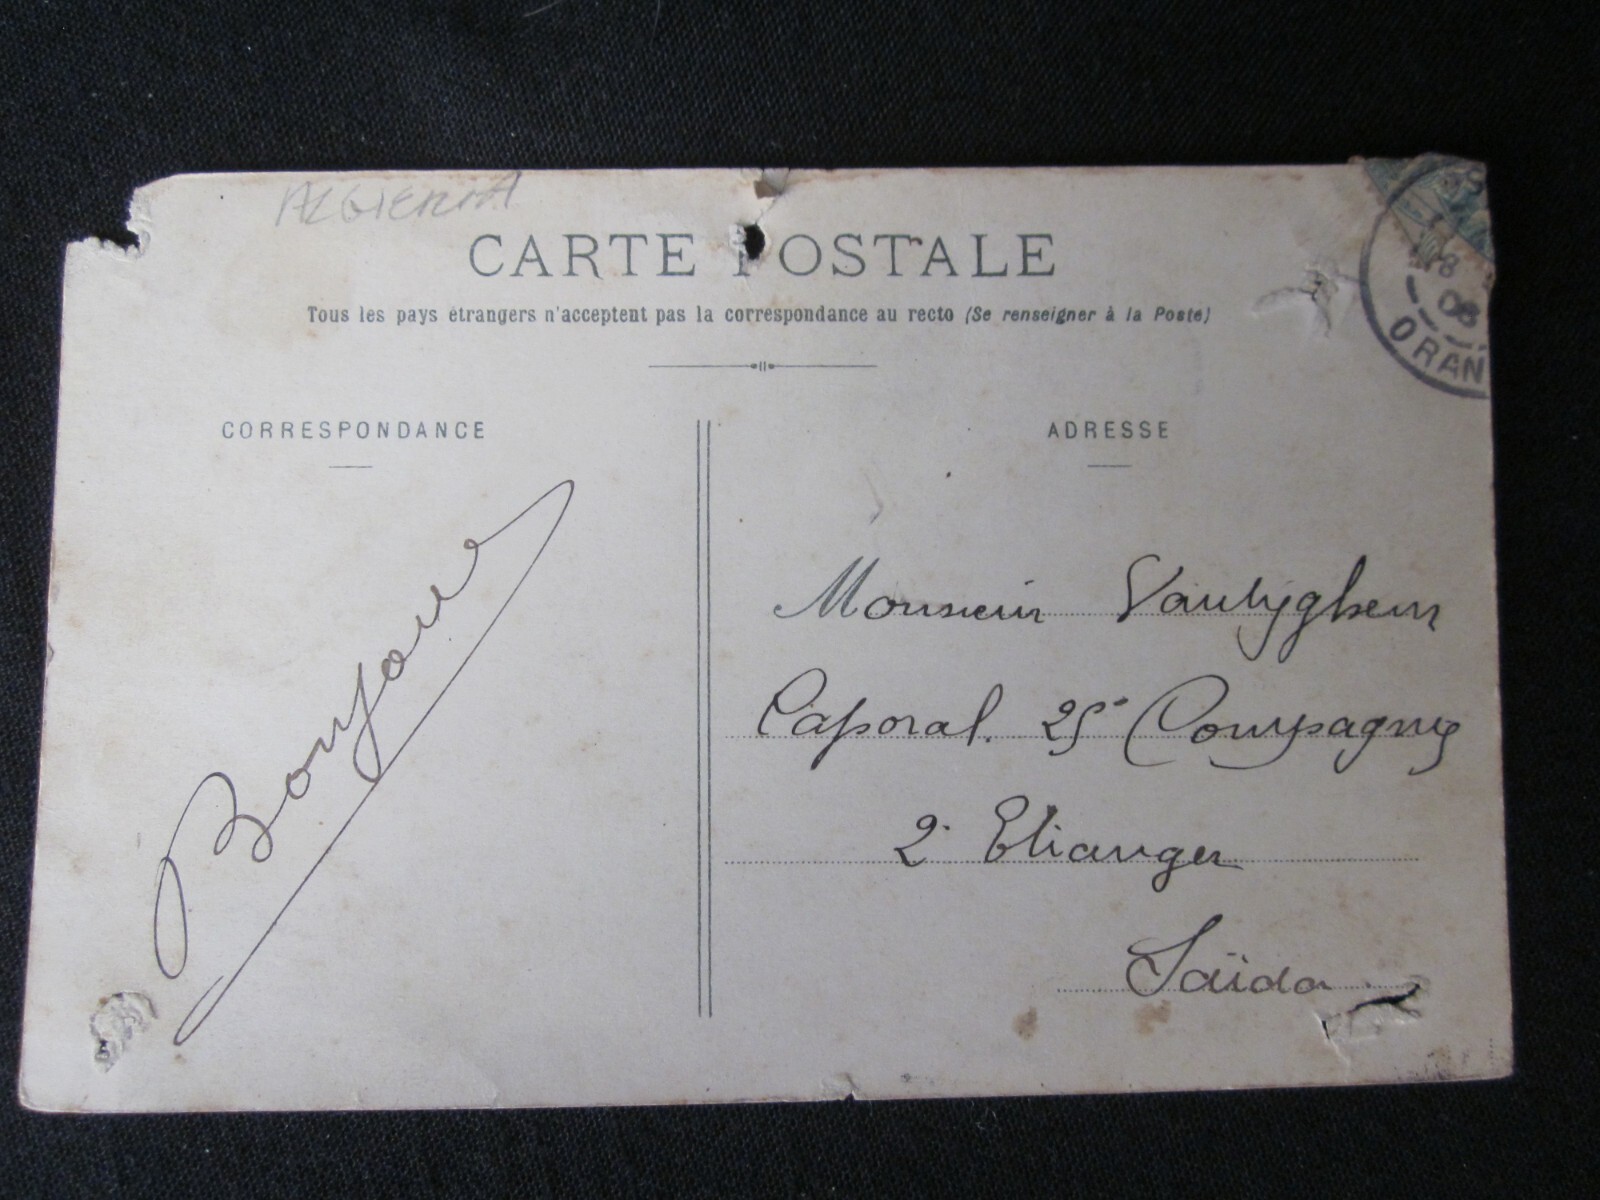 ALGIERIA
CARTE POSTALE
Tous les pays étrangers n'acceptent pas la correspondance au recto (Se renseigner à la Poste)
CORRESPONDANCE
ADRESSE
18
08
ORAN
Bonjour
Monsieur
Caporal. 25e Compagnie
2e Etranger
Saïda